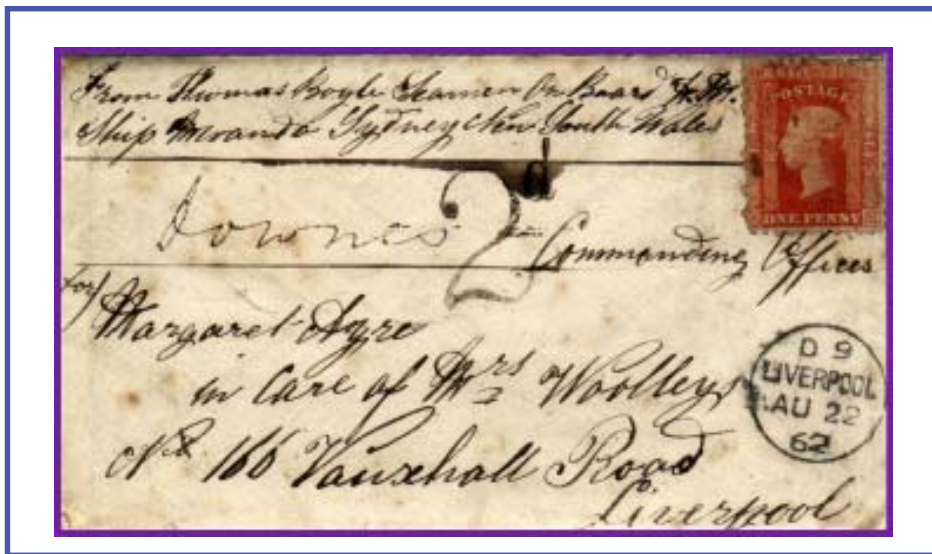 From Thomas Boyle Seamen On Board H. M.
Ship Miranda Sydney New South Wales
POSTAGE
ONE PENNY
2d
Downes
Commanding Officer
for
Margaret Ayre
in Care of Mrs Woolleys
No 166 Vauxhall Road
Liverpool
D 9
LIVERPOOL
AU 22
62